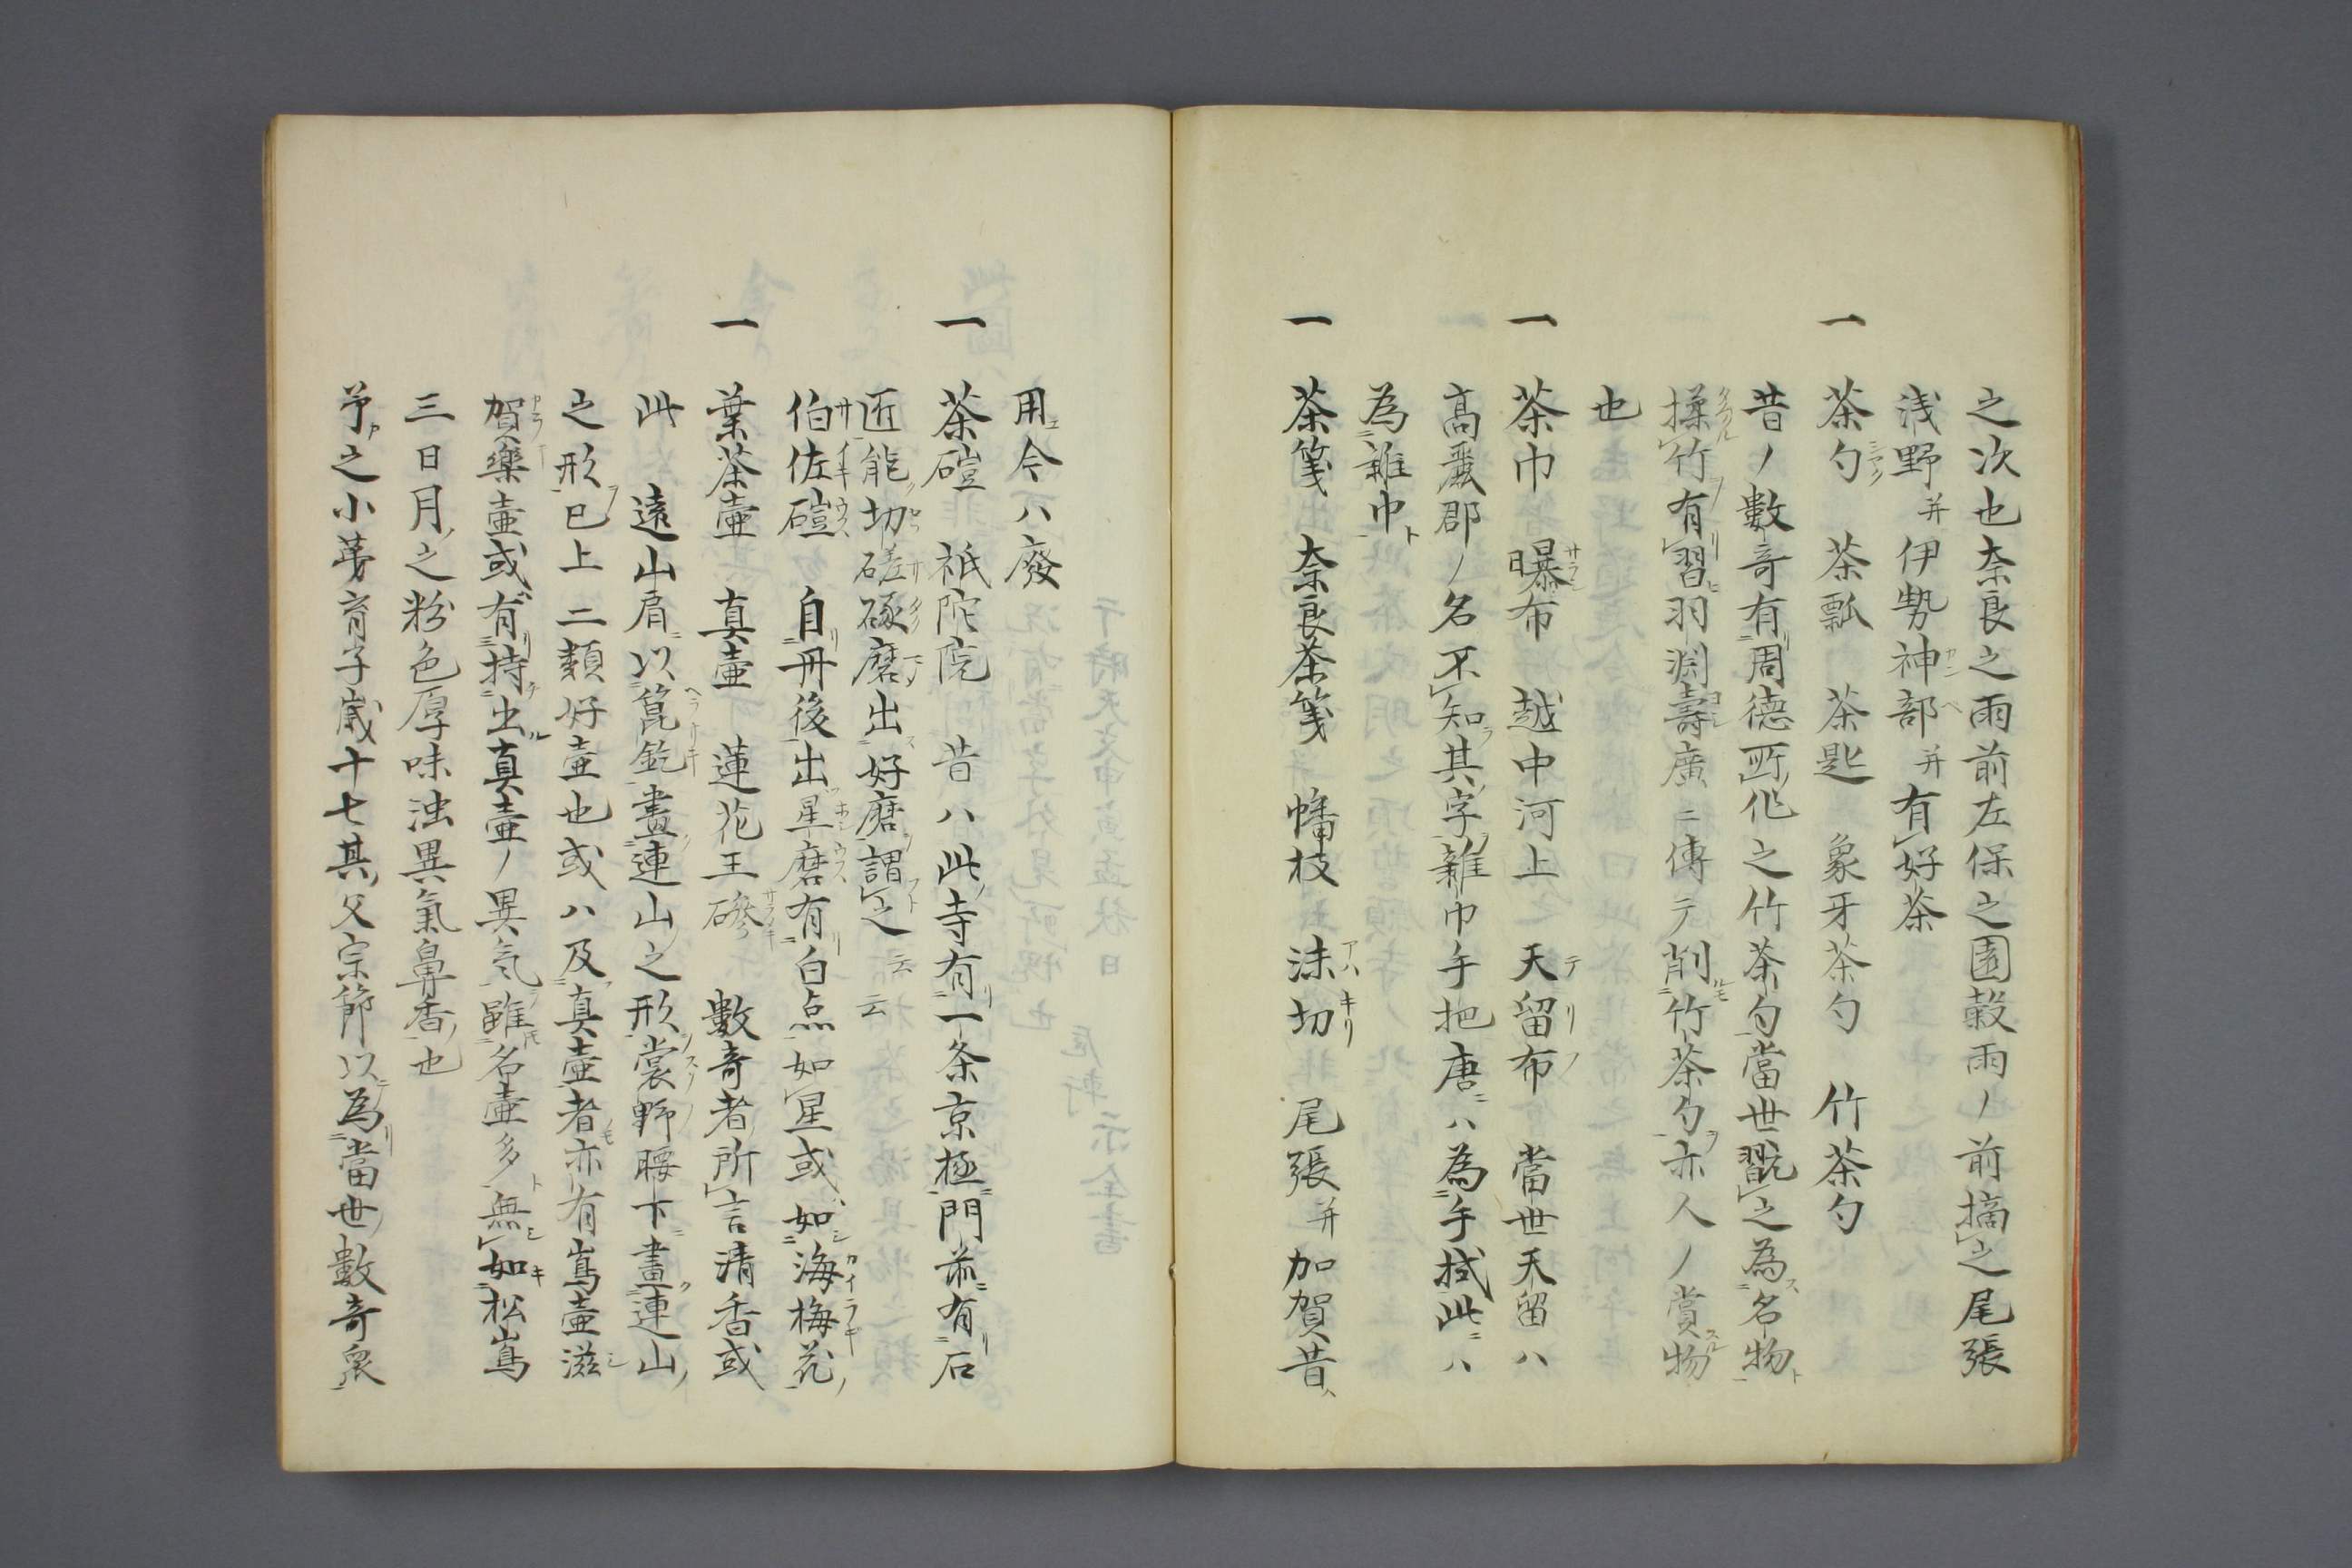 之次也奈良之雨前左保之園穀雨ノ前摘之尾張
浅野并伊勢神部并有好茶
一 茶勺 茶瓢 茶匙 象牙茶勺 竹茶勺
昔ノ數奇有周德所作之竹茶勺當世翫之為名物
揉竹有習羽渕壽廣ニ傳テ削竹茶勺亦人ノ賞物
也
一 茶巾 曝布 越中河上 天留布 當世天留ハ
高麗郡ノ名不知其字雜巾手把唐ハ為手拭此ハ
為雜巾
一 茶箋 奈良茶箋 幡枝 沫切 尾張并加賀昔ハ
用今ハ廢
一 茶磑 祇陀院 昔ハ此寺有一条京極門前有石
匠能切磋琢磨出好磨謂之云云
伯佐磑 自丹後出星磨有白点如星或如海梅花
一 葉茶壷 真壷 蓮花王 磣 數奇者所言清香或
此 遠山肩以箆鉈畫連山之形裳野腰下畫連山
之形已上二類好壷也或ハ及真壷者亦有嶌壷滋
賀樂壷或有持出真壷ノ異気雖名壷多無如松嶌
三日月之粉色厚味浊異氣鼻香也
予之小募育子歳十七其父宗節以為當世數奇衆